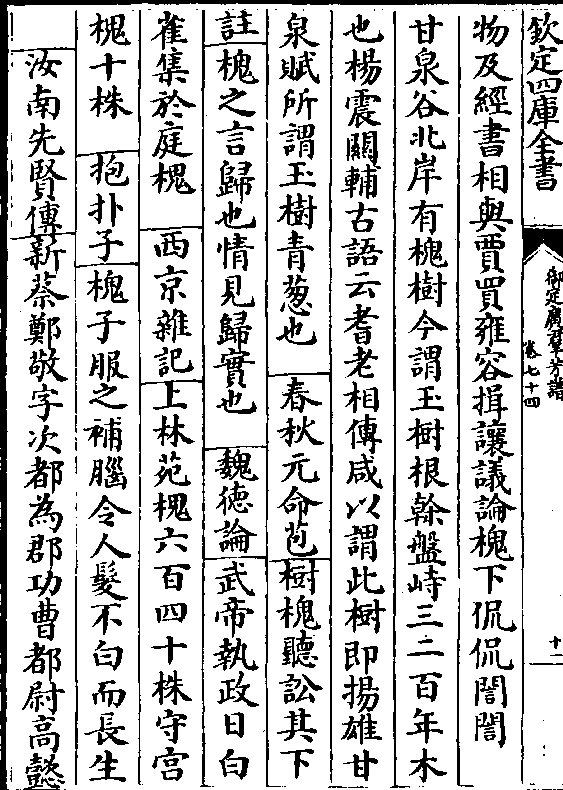 欽定四庫全書
御定廣羣芳譜
卷七十四
十一
物及經書相與賈買雍容揖讓議論槐下侃侃誾誾
甘泉谷北岸有槐樹今謂玉樹根榦盤峙三二百年木
也楊震關輔古語云耆老相傳咸以謂此樹即揚雄甘
泉賦所謂玉樹青葱也 春秋元命苞樹槐聽訟其下
註槐之言歸也情見歸實也 魏德論武帝執政日白
雀集於庭槐 西京雜記上林苑槐六百四十株守宫
槐十株 抱扑子槐子服之補腦令人髮不白而長生
汝南先賢傳新蔡鄭敬字次都為郡功曹都尉高懿